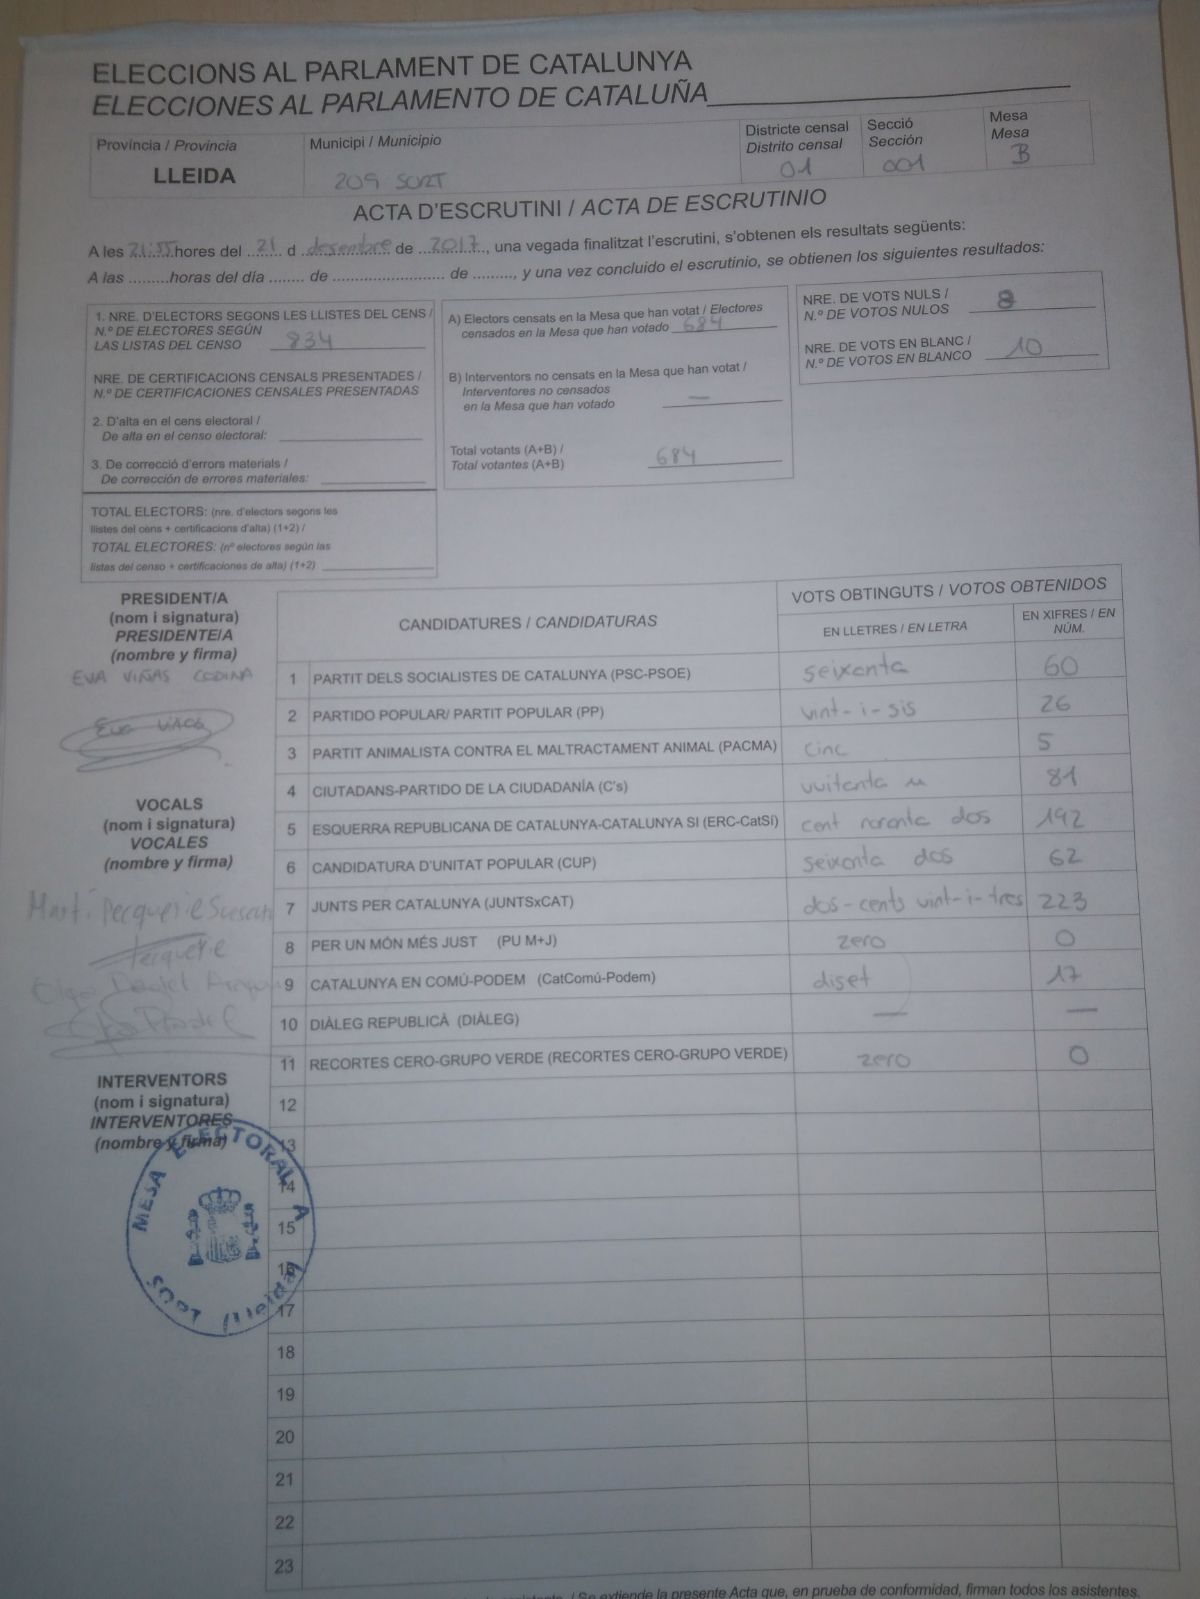 ELECCIONS AL PARLAMENT DE CATALUNYA
ELECCIONES AL PARLAMENTO DE CATALUÑA
Província / Provincia
LLEIDA
Municipi / Municipio
209 SORT
Districte censal
Distrito censal
01
Secció
Sección
001
Mesa
Mesa
B
ACTA D'ESCRUTINI / ACTA DE ESCRUTINIO
A les 21:55 hores del 21 d desembre de 2017, una vegada finalitzat l'escrutini, s'obtenen els resultats següents:
A las .........horas del día ........ de ......................... de ........., y una vez concluido el escrutinio, se obtienen los siguientes resultados:
1. NRE. D'ELECTORS SEGONS LES LLISTES DEL CENS /
N.º DE ELECTORES SEGÚN
LAS LISTAS DEL CENSO 834
NRE. DE CERTIFICACIONS CENSALS PRESENTADES /
N.º DE CERTIFICACIONES CENSALES PRESENTADAS
2. D'alta en el cens electoral /
De alta en el censo electoral:
3. De correcció d'errors materials /
De corrección de errores materiales:
TOTAL ELECTORS: (nre. d'electors segons les
llistes del cens + certificacions d'alta) (1+2) /
TOTAL ELECTORES: (nº electores según las
listas del censo + certificaciones de alta) (1+2)
A) Electors censats en la Mesa que han votat / Electores
censados en la Mesa que han votado 684
B) Interventors no censats en la Mesa que han votat /
Interventores no censados
en la Mesa que han votado —
Total votants (A+B) /
Total votantes (A+B) 684
NRE. DE VOTS NULS /
N.º DE VOTOS NULOS 8
NRE. DE VOTS EN BLANC /
N.º DE VOTOS EN BLANCO 10
PRESIDENT/A
(nom i signatura)
PRESIDENTE/A
(nombre y firma)
EVA VIÑAS CODINA
Eva Viñas
VOCALS
(nom i signatura)
VOCALES
(nombre y firma)
Martí Perquerie
Perquerie
INTERVENTORS
(nom i signatura)
INTERVENTORES
(nombre y firma)
MESA ELECTORAL A
SORT (Lleida)
CANDIDATURES / CANDIDATURAS
VOTS OBTINGUTS / VOTOS OBTENIDOS
EN LLETRES / EN LETRA
EN XIFRES / EN
NÚM.
1 PARTIT DELS SOCIALISTES DE CATALUNYA (PSC-PSOE) seixanta 60
2 PARTIDO POPULAR/ PARTIT POPULAR (PP) vint-i-sis 26
3 PARTIT ANIMALISTA CONTRA EL MALTRACTAMENT ANIMAL (PACMA) cinc 5
4 CIUTADANS-PARTIDO DE LA CIUDADANÍA (C's) vuitanta u 81
5 ESQUERRA REPUBLICANA DE CATALUNYA-CATALUNYA SI (ERC-CatSí) cent noranta dos 192
6 CANDIDATURA D'UNITAT POPULAR (CUP) seixanta dos 62
7 JUNTS PER CATALUNYA (JUNTSxCAT) dos-cents vint-i-tres 223
8 PER UN MÓN MÉS JUST (PU M+J) zero 0
9 CATALUNYA EN COMÚ-PODEM (CatComú-Podem) diset 17
10 DIÀLEG REPUBLICÀ (DIÀLEG) — —
11 RECORTES CERO-GRUPO VERDE (RECORTES CERO-GRUPO VERDE) zero 0
12
13
14
15
16
17
18
19
20
21
22
23
/ Se extiende la presente Acta que, en prueba de conformidad, firman todos los asistentes.